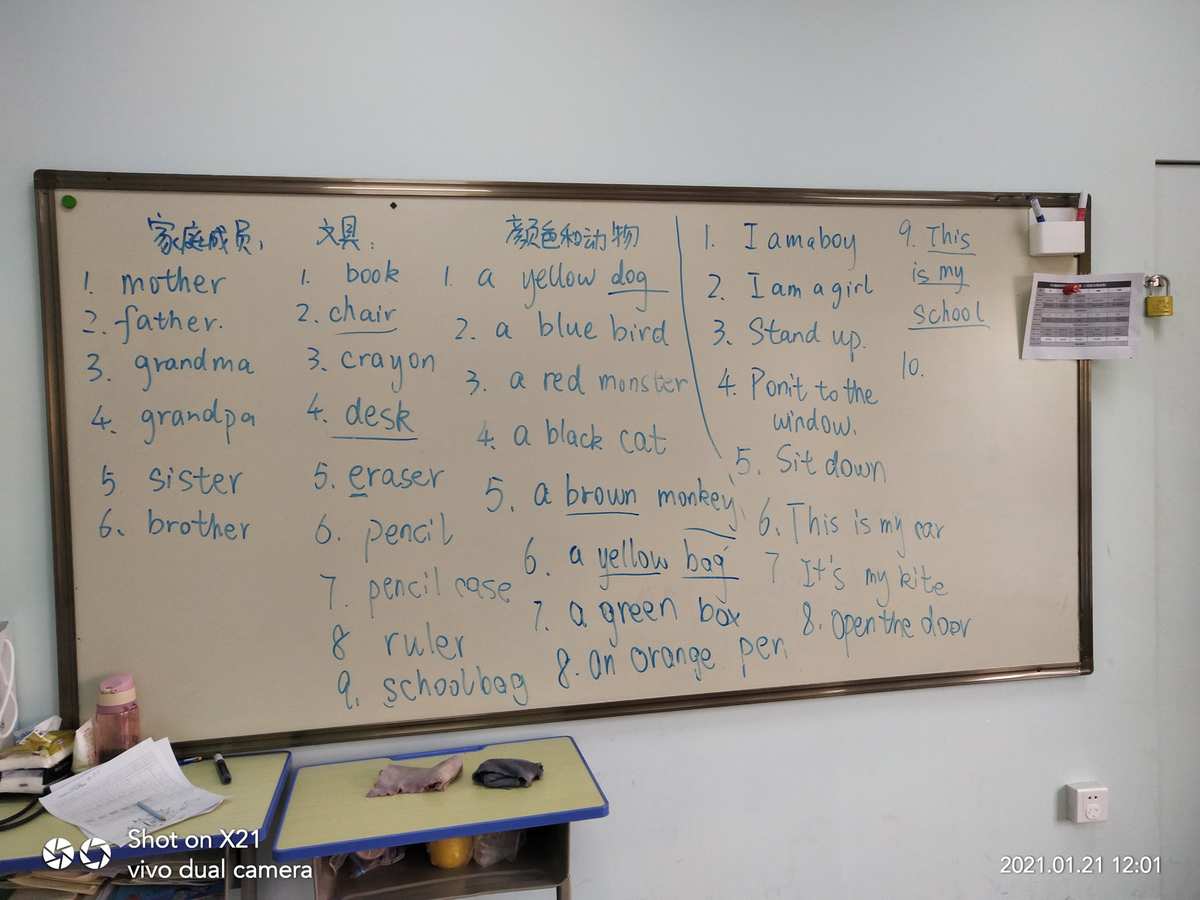 家庭成员:
1. mother
2. father.
3. grandma
4. grandpa
5 sister
6. brother
文具:
1. book
2. chair
3. crayon
4. desk
5. eraser
6. pencil
7. pencil case
8 ruler
9. schoolbag
颜色和动物
1. a yellow dog
2. a blue bird
3. a red monster
4. a black cat
5. a brown monkey
6. a yellow bag
7. a green box
8. an orange pen
1. I am a boy
2. I am a girl
3. Stand up.
4. Ponit to the
window.
5. Sit down
6. This is my car
7 It's my kite
8. Open the door
9. This
is my
school
10.
Shot on X21
vivo dual camera
2021.01.21 12:01